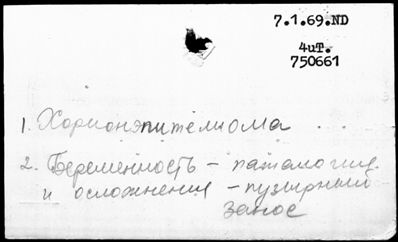 7.1.69.ND
4иТ.
750661
1. Хорионэпителиома
2. Беременность – патология
и осложнения – пузырный
занос